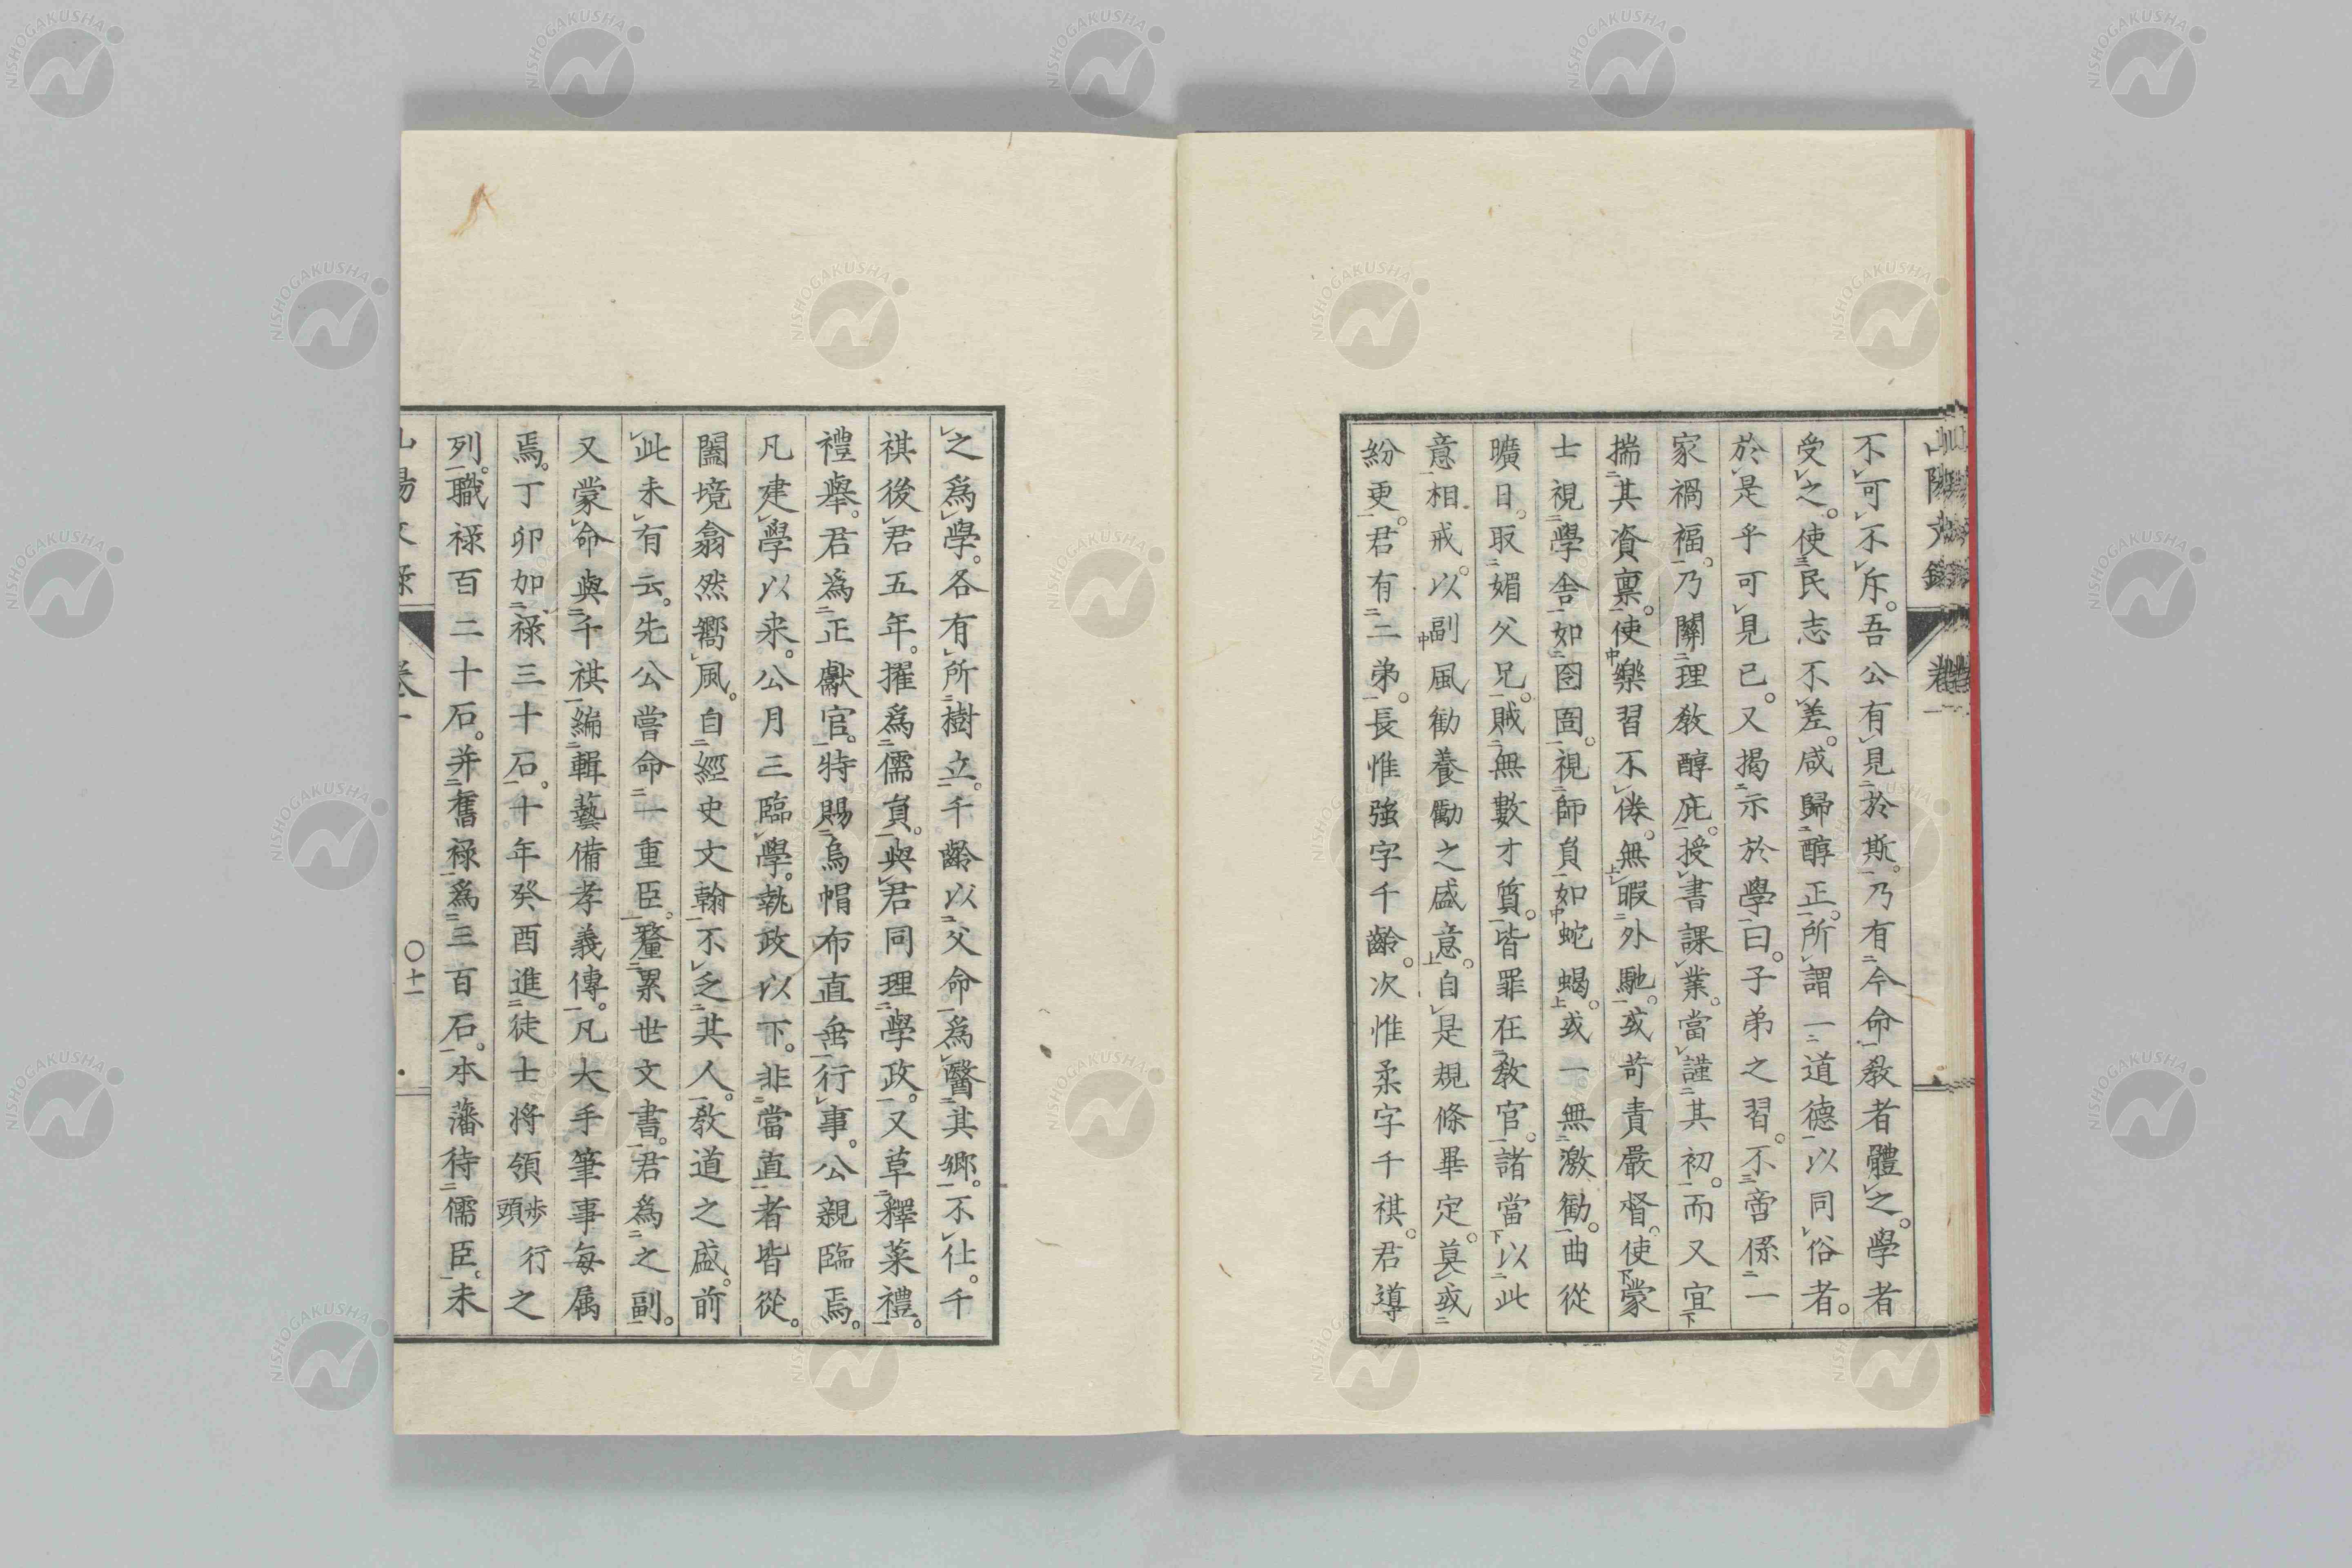 不可不斥。吾公有見於斯。乃有今命。教者體之。學者
受之。使民志不差。咸歸醇正。所謂一道德以同俗者。
於是乎可見已。又揭示於學曰。子弟之習。不啻係一
家禍福。乃關理教醇庇。授書課業。當謹其初。而又宜
揣其資稟。使樂習不倦。無暇外馳。或苛責嚴督。使蒙
士視學舍如囹圄。視師員如蛇蝎。或一無激勸。曲從
曠日。取媚父兄。賊無數才質。皆罪在教官。諸當以此
意相戒。以副風勸養勵之盛意。自是規條畢定。莫或
紛更。君有二弟。長惟強字千齡。次惟柔字千祺。君導
之為學。各有所樹立。千齡以父命為醫其鄉。不仕。千
祺後君五年。擢為儒員。與君同理學政。又草釋菜禮。
禮舉。君為正獻官。特賜烏帽布直垂行事。公親臨焉。
凡建學以来。公月三臨學。執政以下。非當直者皆從。
闔境翕然嚮風。自經史文翰不乏其人。教道之盛。前
此未有云。先公嘗命一重臣。釐累世文書。君為之副。
又蒙命與千祺編輯藝備孝義傳。凡大手筆事每属
焉。丁卯如祿三十石。十年癸酉進徒士將領歩頭行之
列。職祿百二十石。并舊祿為三百石。本藩待儒臣。未
山陽文錄
卷一
〇十一
NISHOGAKUSHA